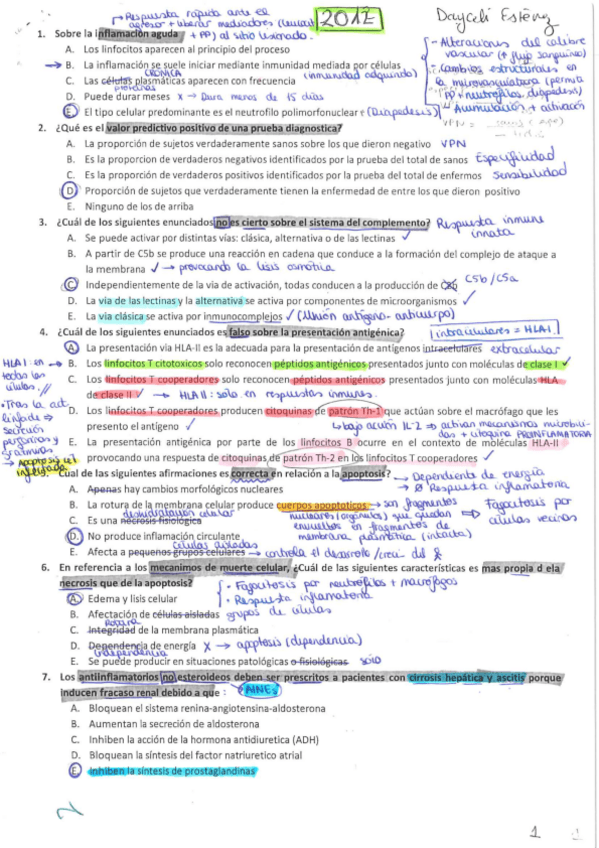 Respuesta rápida ante el
agresor + liberar mediadores
2017
Dayceli Estévez
+ PP) al sitio lesionado.
1. Sobre la inflamación aguda
A. Los linfocitos aparecen al principio del proceso
→ B. La inflamación se suele iniciar mediante inmunidad mediada por células (inmunidad adquirida)
CRÓNICA
C. Las células plasmáticas aparecen con frecuencia
D. Puede durar meses X → Dura menos de 15 días
E. El tipo celular predominante es el neutrofilo polimorfonuclear (Diapedesis)
- Alteraciones del calibre
vascular (↑ flujo sanguíneo)
- Cambios estructurales en
la microvasculatura (permite
PP + neutrófilos, diapedesis)
- Acumulación + activación
VPN =
2. ¿Qué es el valor predictivo positivo de una prueba diagnostica?
A. La proporción de sujetos verdaderamente sanos sobre los que dieron negativo VPN
B. Es la proporcion de verdaderos negativos identificados por la prueba del total de sanos Especificidad
C. Es la proporción de verdaderos positivos identificados por la prueba del total de enfermos Sensibilidad
D. Proporción de sujetos que verdaderamente tienen la enfermedad de entre los que dieron positivo
E. Ninguno de los de arriba
3. ¿Cuál de los siguientes enunciados no es cierto sobre el sistema del complemento? Respuesta inmune
innata
A. Se puede activar por distintas vías: clásica, alternativa o de las lectinas ✓
B. A partir de C5b se produce una reacción en cadena que conduce a la formación del complejo de ataque a
la membrana ✓ → provocando la lisis osmótica
C. Independientemente de la via de activación, todas conducen a la producción de C5b/C5a
D. La via de las lectinas y la alternativa se activa por componentes de microorganismos ✓
E. La via clásica se activa por inmunocomplejos ✓ (Unión antígeno-anticuerpo)
4. ¿Cuál de los siguientes enunciados es falso sobre la presentación antigénica? intracelulares = HLA-I.
A. La presentación via HLA-II es la adecuada para la presentación de antígenos intracelulares extracelular
HLA I: en
todas las
células.//
→ B. Los linfocitos T citotoxicos solo reconocen péptidos antigénicos presentados junto con moléculas de clase I ✓
C. Los linfocitos T cooperadores solo reconocen péptidos antigénicos presentados junto con moléculas HLA
de clase II ✓ → HLA II: solo en respuestas inmunes.
• Tras la act.
linfocit ⇒
Secreción
perforinas y
→ Apoptosis cel
infectada
D. Los linfocitos T cooperadores producen citoquinas de patrón Th-1 que actúan sobre el macrófago que les
presento el antígeno ✓ → bajo acción IL-2 → activan mecanismos microbici-
das + citoquina PROINFLAMATORIA
E. La presentación antigénica por parte de los linfocitos B ocurre en el contexto de moléculas HLA-II
provocando una respuesta de citoquinas de patrón Th-2 en los linfocitos T cooperadores ✓
→ Dependiente de energía
→ Ø Respuesta inflamatoria
5. Cual de las siguientes afirmaciones es correcta en relación a la apoptosis?
A. Apenas hay cambios morfológicos nucleares
B. La rotura de la membrana celular produce cuerpos apoptoticos → son fragmentos
nucleares (orgánulos) que quedan
envueltos en fragmentos de
membrana plasmática (intacta)
⇒ Fagocitosis por
células vecinas
C. Es una necrosis fisiológica
D. No produce inflamación circulante
células aisladas
E. Afecta a pequenos grupos celulares → controla el desarrollo
6. En referencia a los mecanimos de muerte celular, ¿Cuál de las siguientes características es mas propia d ela
necrosis que de la apoptosis?
• Fagocitosis por neutrófilos + macrófagos
• Respuesta inflamatoria
A. Edema y lisis celular
B. Afectación de células aisladas grupos de células
Rotura
C. Integridad de la membrana plasmática
D. Dependencia de energía X → apoptosis (dependencia)
Independencia
E. Se puede producir en situaciones patológicas o fisiológicas solo
7. Los antiinflamatorios no esteroideos deben ser prescritos a pacientes con cirrosis hepática y ascitis porque
inducen fracaso renal debido a que : → AINEs
A. Bloquean el sistema renina-angiotensina-aldosterona
B. Aumentan la secreción de aldosterona
C. Inhiben la acción de la hormona antidiuretica (ADH)
D. Bloquean la síntesis del factor natriuretico atrial
E. Inhiben la síntesis de prostaglandinas
1
1